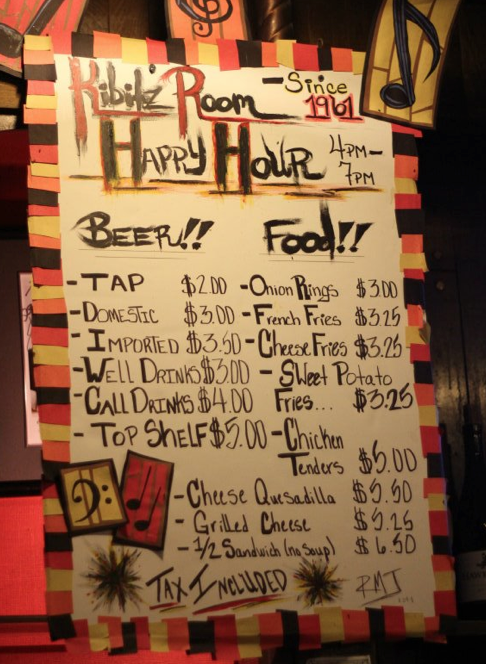 Kibitz Room - Since 1961
Happy Hour 4PM-7PM
Beer!!
- Tap $2.00
- Domestic $3.00
- Imported $3.50
- Well Drinks $3.00
- Call Drinks $4.00
- Top Shelf $5.00
Food!!
- Onion Rings $3.00
- French Fries $3.25
- Cheese Fries $3.25
- Sweet Potato
Fries... $3.25
- Chicken
Tenders $5.00
- Cheese Quesadilla $5.50
- Grilled Cheese $5.25
- 1/2 Sandwich (no soup) $6.50
Tax Included
RMJ